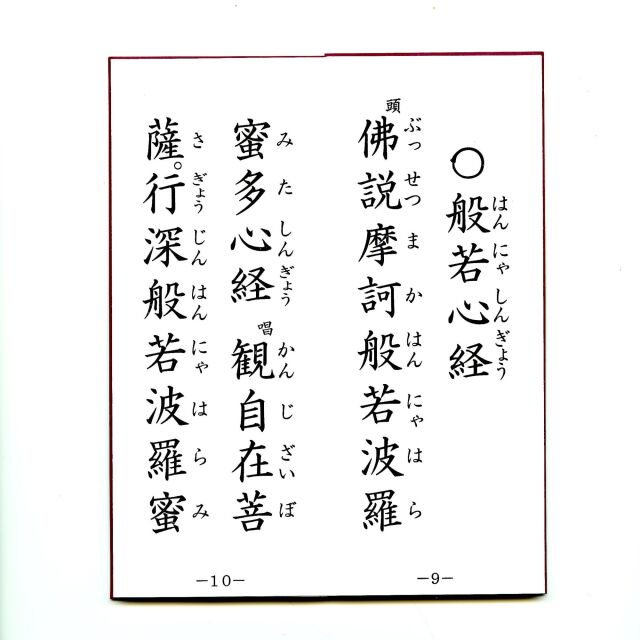 ○般若心経
はんにゃしんぎょう
頭
佛説摩訶般若波羅
ぶっせつまかはんにゃはら
蜜多心経 唱 観自在菩
みたしんぎょう かんじざいぼ
薩。行深般若波羅蜜
さぎょうじんはんにゃはらみ
−9−
−10−